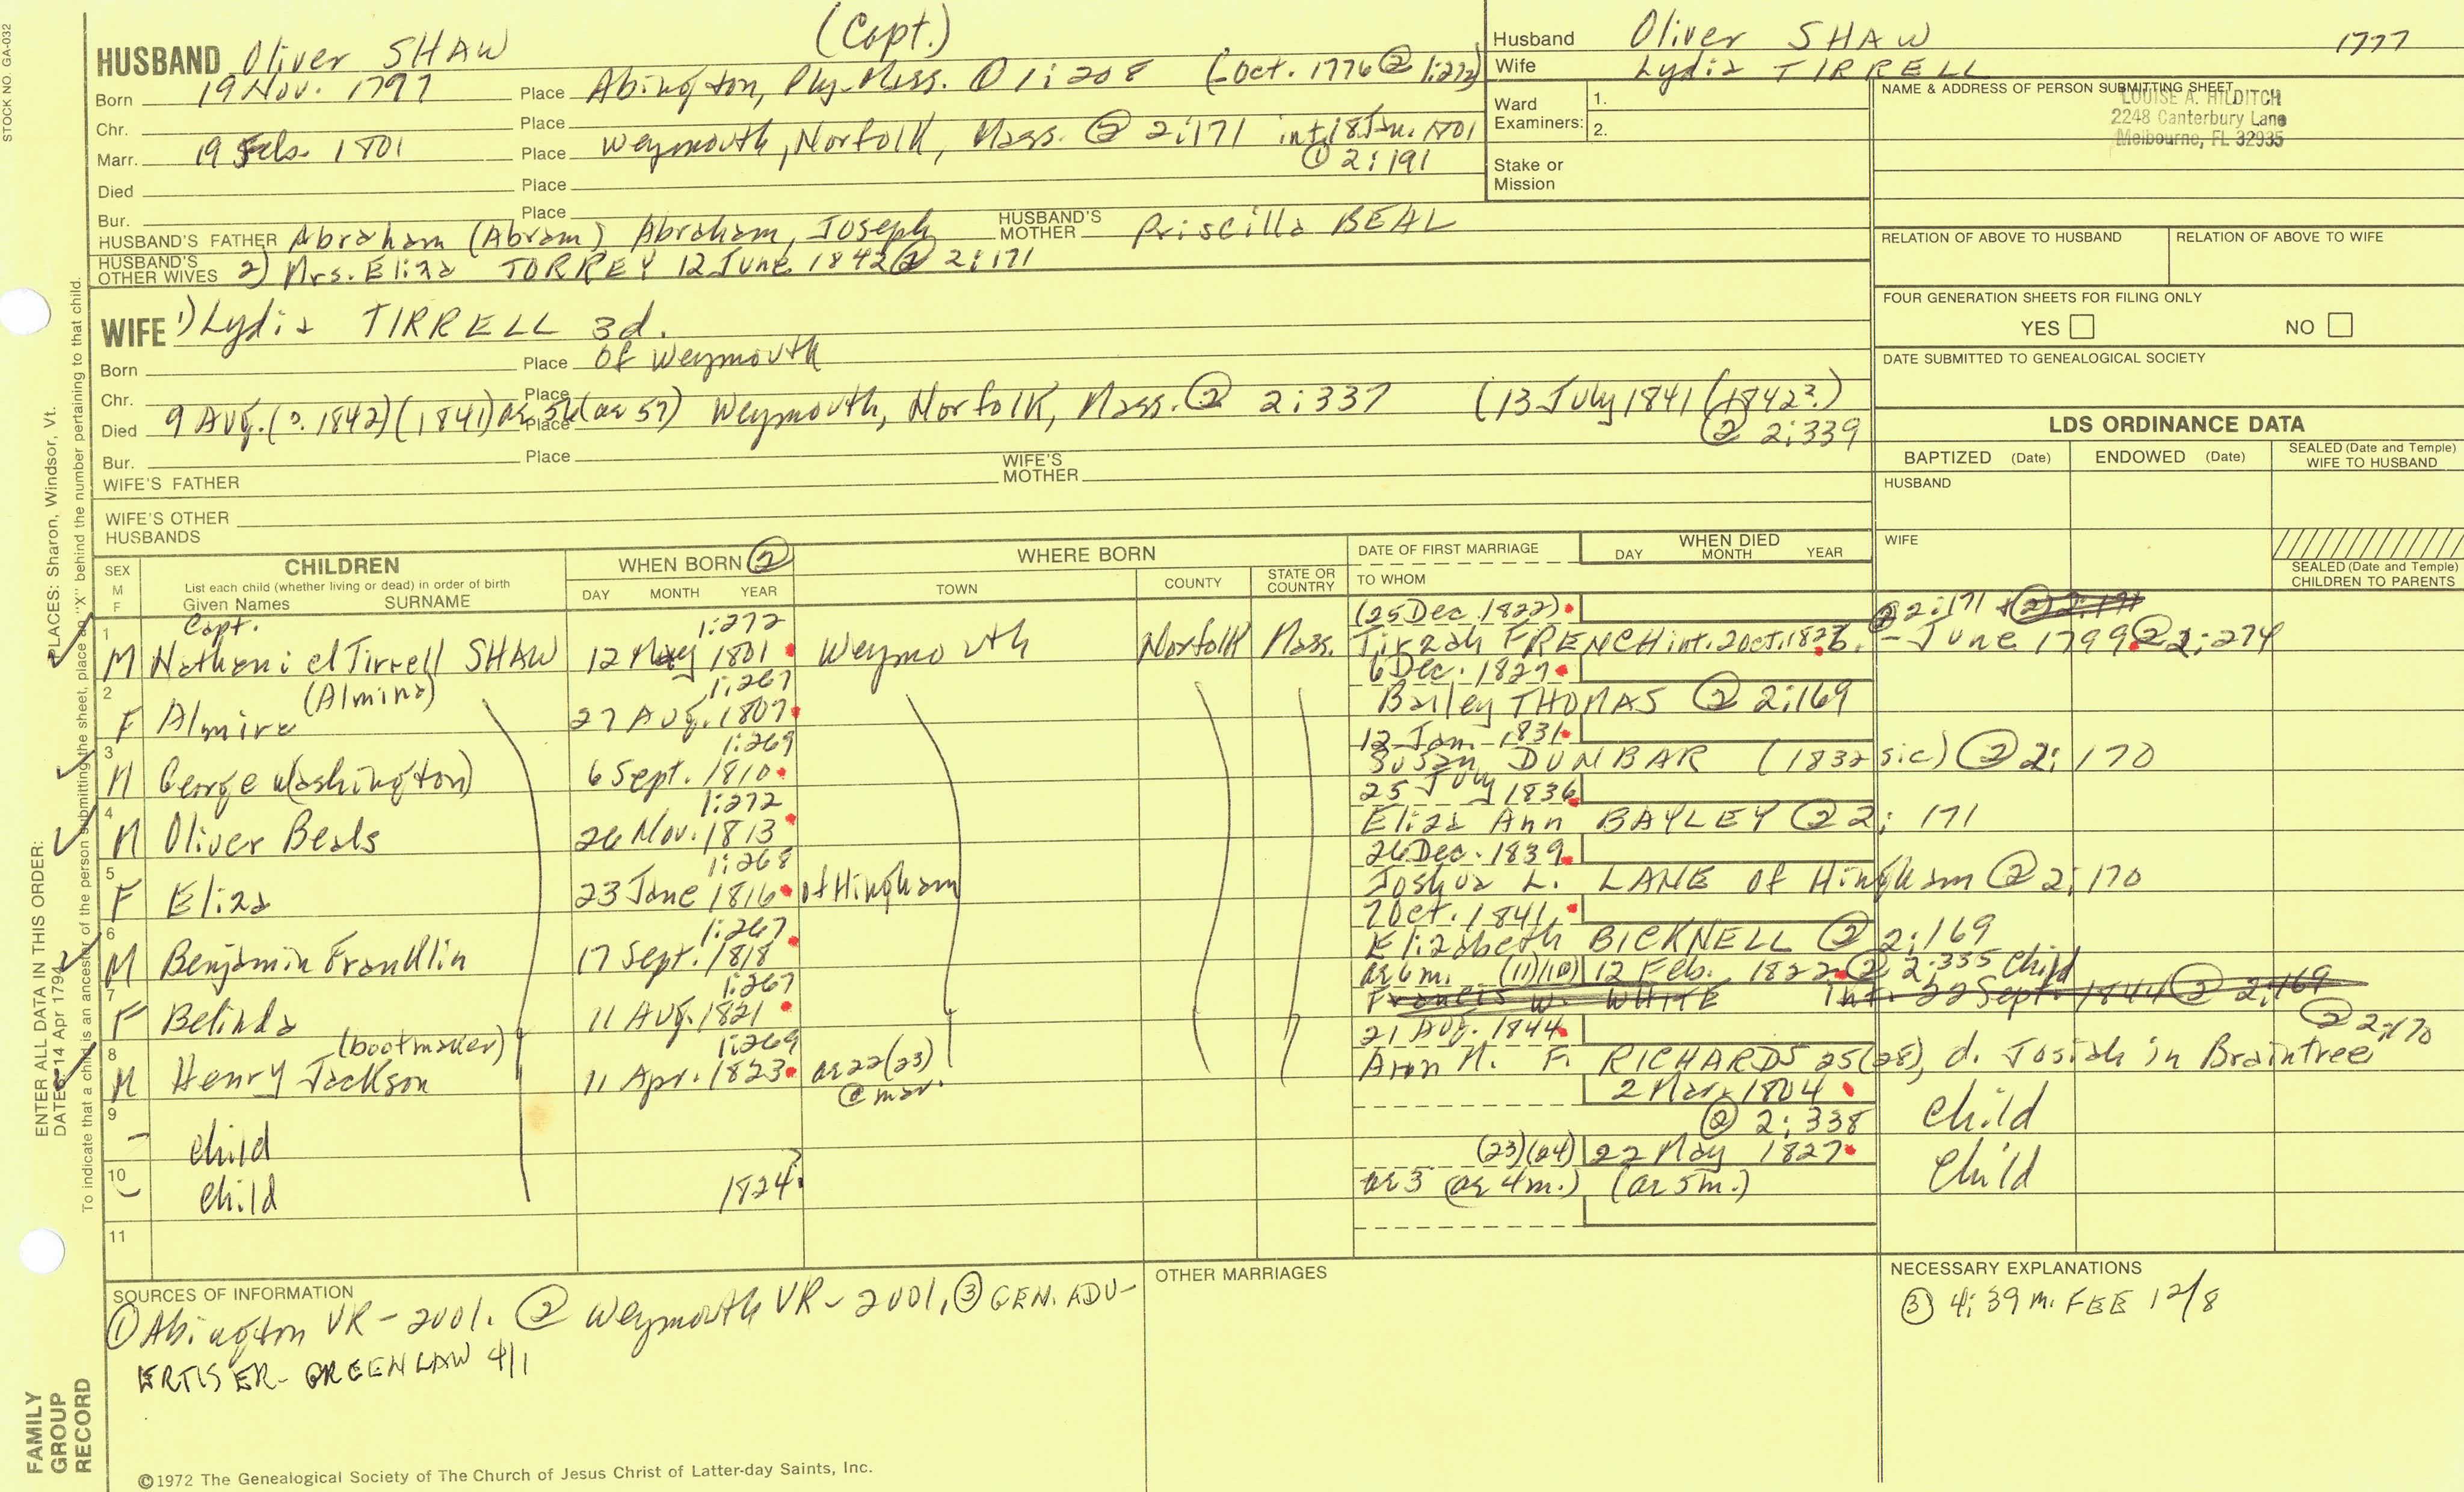 STOCK NO. GA-032
(Capt.)
HUSBAND Oliver SHAW
Born 19 Nov. 1777 Place Abington, Ply. Mass. ① 1:208 (-Oct. 1776 ② 1:272)
Chr. Place
Marr. 19 Feb. 1801 Place Weymouth, Norfolk, Mass. ② 2:171 int. 18 Jan. 1801
① 2:191
Died Place
Bur. Place
HUSBAND'S FATHER Abraham (Abram) Abraham, Joseph HUSBAND'S MOTHER Priscilla BEAL
HUSBAND'S OTHER WIVES 2) Mrs. Eliza TORREY 12 June 1842 ② 2:171
WIFE 1) Lydia TIRRELL 3d.
Born Place of Weymouth
Chr. Place
Died 9 Aug. (?. 1842) (1841) ae 56 (ae 57) Place Weymouth, Norfolk, Mass. ② 2:337 (13 July 1841 (1842?)
② 2:339
Bur. Place
WIFE'S FATHER WIFE'S MOTHER
WIFE'S OTHER HUSBANDS
Husband Oliver SHAW 1777
Wife Lydia TIRRELL
Ward Examiners: 1.
2.
Stake or Mission
NAME & ADDRESS OF PERSON SUBMITTING SHEET
LOUISE A. HILDITCH
2248 Canterbury Lane
Melbourne, FL 32935
RELATION OF ABOVE TO HUSBAND RELATION OF ABOVE TO WIFE
FOUR GENERATION SHEETS FOR FILING ONLY
YES NO
DATE SUBMITTED TO GENEALOGICAL SOCIETY
LDS ORDINANCE DATA
BAPTIZED (Date) ENDOWED (Date) SEALED (Date and Temple) WIFE TO HUSBAND
HUSBAND
WIFE
SEALED (Date and Temple) CHILDREN TO PARENTS
SEX M F
CHILDREN
List each child (whether living or dead) in order of birth
Given Names SURNAME
WHEN BORN ②
DAY MONTH YEAR
WHERE BORN
TOWN COUNTY STATE OR COUNTRY
DATE OF FIRST MARRIAGE
TO WHOM
WHEN DIED
DAY MONTH YEAR
1 Capt. 1:272 (25 Dec. 1822) ② 2:171
M Nathaniel Tirrell SHAW 12 May 1801 Weymouth Norfolk Mass. Tirzah FRENCH int. 2 Oct. 1823. - June 1799 ② 1:274
2 (Almina) 1:267 6 Dec. 1827
F Almira 27 Aug. 1807 Bailey THOMAS ② 2:169
3 1:269 12 Jan. 1831
M George W(ashington) 6 Sept. 1810 Susan DUNBAR (1832 sic) ② 2:170
4 1:272 25 July 1836
M Oliver Beals 26 Nov. 1813 Eliza Ann BAYLEY ② 2:171
5 1:268 26 Dec. 1839
F Eliza 23 June 1816 of Hingham Joshua L. LANE of Hingham ② 2:170
6 1:267 7 Oct. 1841
M Benjamin Franklin 17 Sept. 1818 Elizabeth BICKNELL ② 2:169
7 1:267 ae 6 m. (11)(10) 12 Feb. 1822 ② 2:335 child
F Belinda 11 Aug. 1821 Francis W. WHITE int. 22 Sept. 1844 ② 2:169
8 (bootmaker) 1:269 21 Aug. 1844 ② 2:170
M Henry Jackson 11 Apr. 1823 ae 22 (23) @ mar. Ann M. F. RICHARDS 25 (28), d. Josiah in Braintree
9 2 Mar. 1804
child ② 2:338 child
10 (23)(24) 22 May 1827
child 1824 ae 3 (ae 4 m.) (ae 5 m.) child
11
SOURCES OF INFORMATION
① Abington VR - 2001. ② Weymouth VR - 2001. ③ GEN. ADV-
ERTISER - GREENLAW 4/1
OTHER MARRIAGES
NECESSARY EXPLANATIONS
③ 4:39 m. FEE 12/8
©1972 The Genealogical Society of The Church of Jesus Christ of Latter-day Saints, Inc.
FAMILY GROUP RECORD
ENTER ALL DATA IN THIS ORDER:
DATES: 14 Apr 1794
PLACES: Sharon, Windsor, Vt.
To indicate that a child is an ancestor of the person submitting the sheet, place an "X" behind the number pertaining to that child.